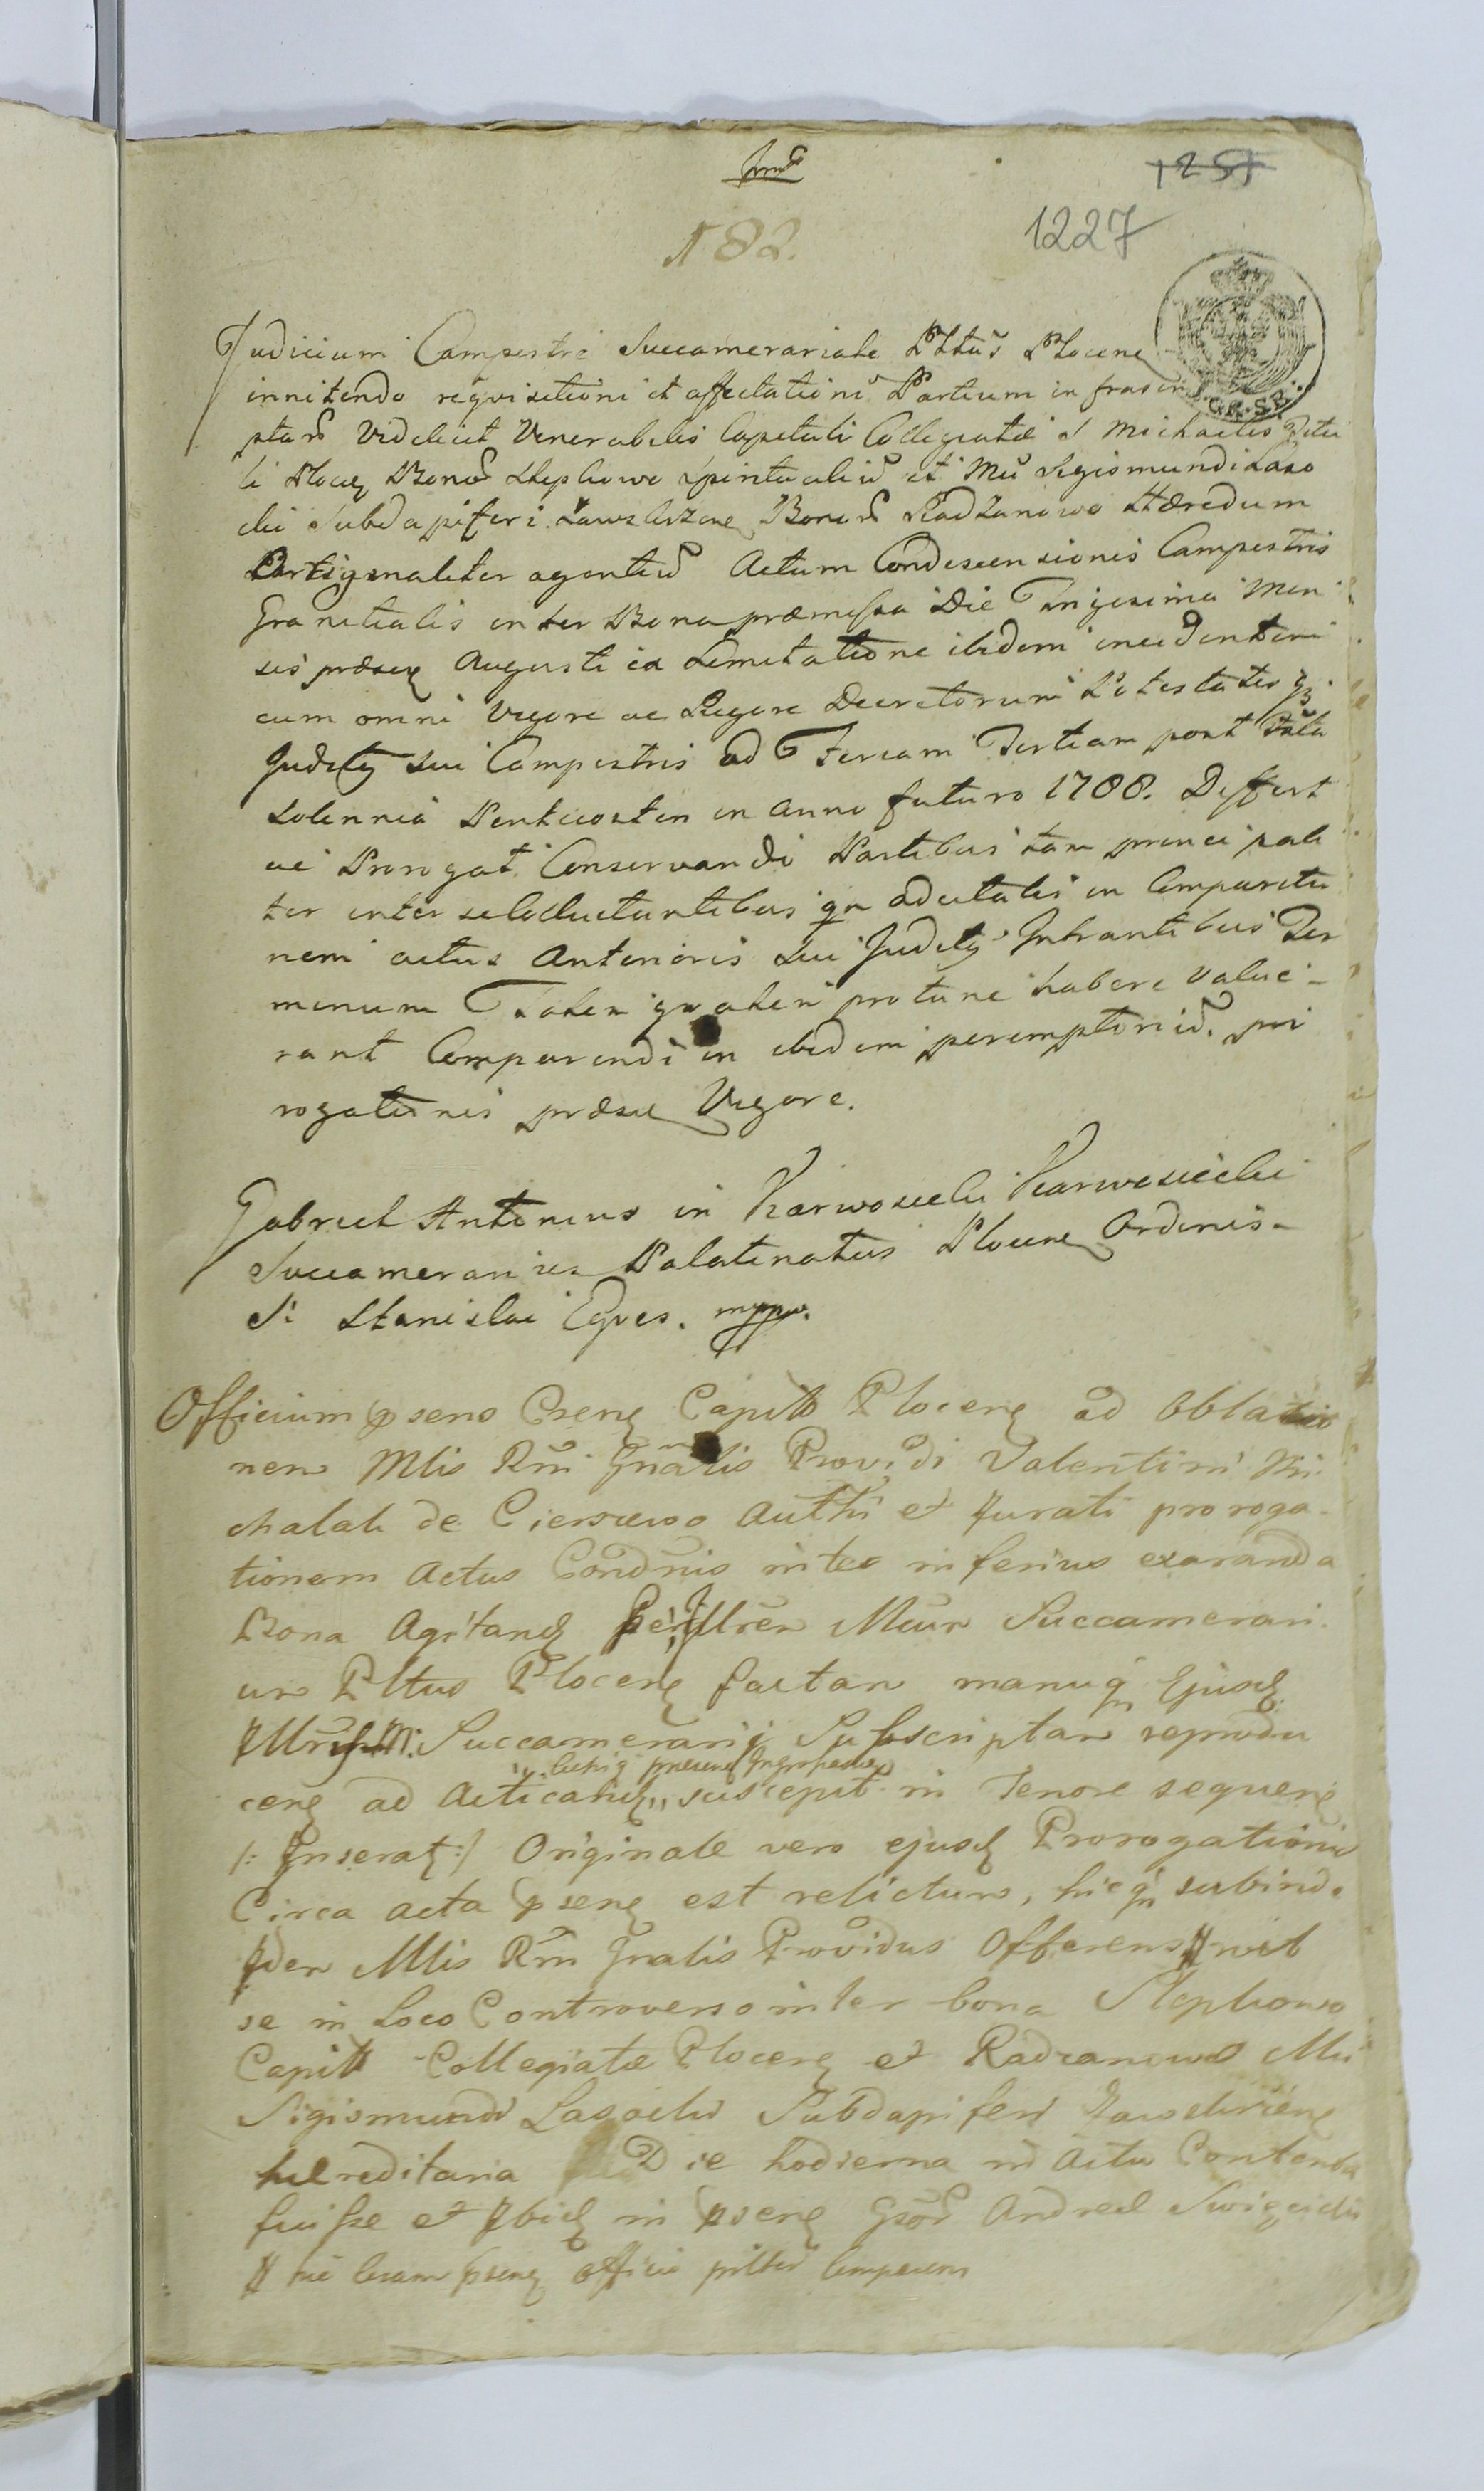 1251
1227
182.
Judicium Campestre Succamerariale Plttus Plocen
innitendo requisitioni et affectationi Partium infrascri
ptar Videlicet Venerabilis Capituli Collegiatæ S Michaelis
li Ploceñ Bonor Stephowo spiritualiu et Mci Sigismundi Laso
cki Subdapiferi Bonor Radzanowo Hæredum
agentiu Actum Condescensionis Campestris
Granitialis inter Bona præmissa Die Trigesima Men
sis præsen Augusti ex Limitatione ibidem incidentem
cum omni Vigore ac Rigore Decretorum Potestatis
Judicy sui Campestris ad Feriam Tertiam post
Solennia Pentecosten in anno futuro 1788. Differt
ac Prorogat Conservandi Partibus tam principali
ter inter se Colluctantibus qm adcitatis in Comparitio
nem actus Anterioris sui Judicy Intrantibus Ter
minum Talem qualem pro tunc habere value-
rant Comparendi in ibidem peremptoriu. pro
rogationis præsen Vigore.
Gabriel Antonius in Karwosieki Karwosiecki
Succamerarius Palatinatus Plocen Ordinis
Si Stanislai Eques. mppa.
Officium psens Csen Capitl Plocen ad Oblatio
nem Mlis Rm Gnalis Providi Valentini Mi
chalak de Cierszewo Authi et Jurati proroga-
tionem Actus Condnis inter inferius exaranda
Bona Agitand per Illrem Mcum Succamerari
um Pltus Plocen factam manuq Ejusd
Succamerarij Subscriptam reprodu
cen ad Acticand suscepit in Tenore sequen
/: Inserat :/ Originale vero ejusd Prorogationis
Circa acta psen est relictum, hicq subinde
Idem Mlis Rm Gnalis Providus Offerens
se in Loco Controverso inter bona Stephowo
Capitl Collegiatæ Plocen et Radzanowo Mci
Sigismundi Lasocki Subdapiferi
hæreditaria Die hodierna in Actu Contenta
fuisse et Ibid in psen Gsor Andreæ
psen officio comparens